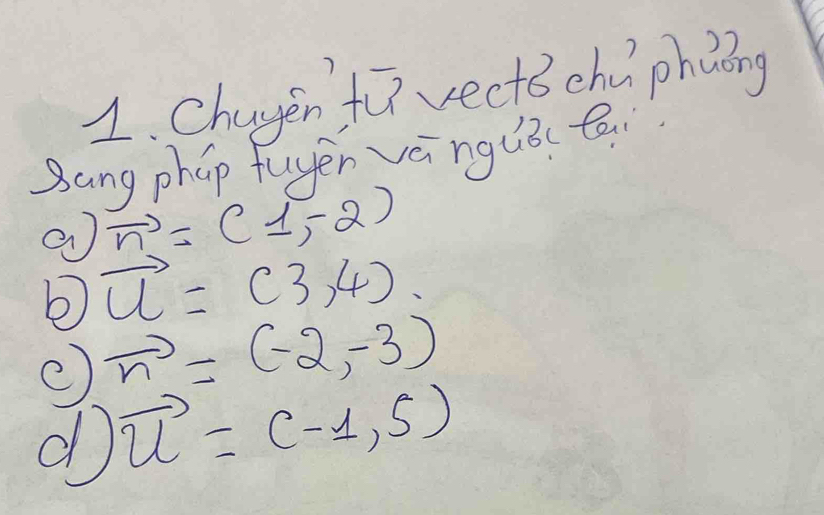 1. Chuyển từ vectơ chỉ phương
sang pháp tuyến và ngược lại.
a) n⃗ = (1,-2)
b) u⃗ = (3,4).
c) n⃗ = (-2,-3)
d) u⃗ = (-1,5)